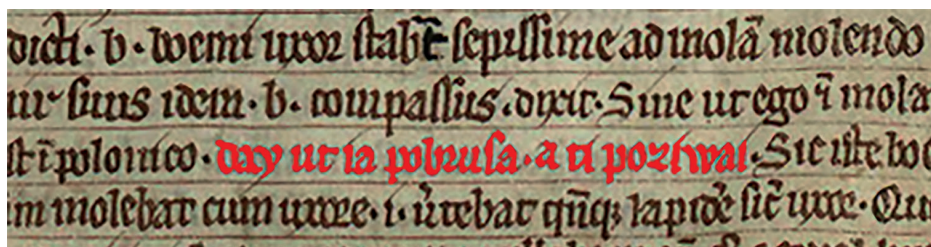 dicti · b · boemi uxor stab̄t sepissime ad molā molendo
ur suus idem · b · compassus · dixit · Sine ut ego ī mola
st ī polonico · day ut ia pobrusa · a ti poziwai · Sic iste boe
im molebat cum uxore · i · v̄tebat qn̄q; lapidē sic̄ uxor · Qu